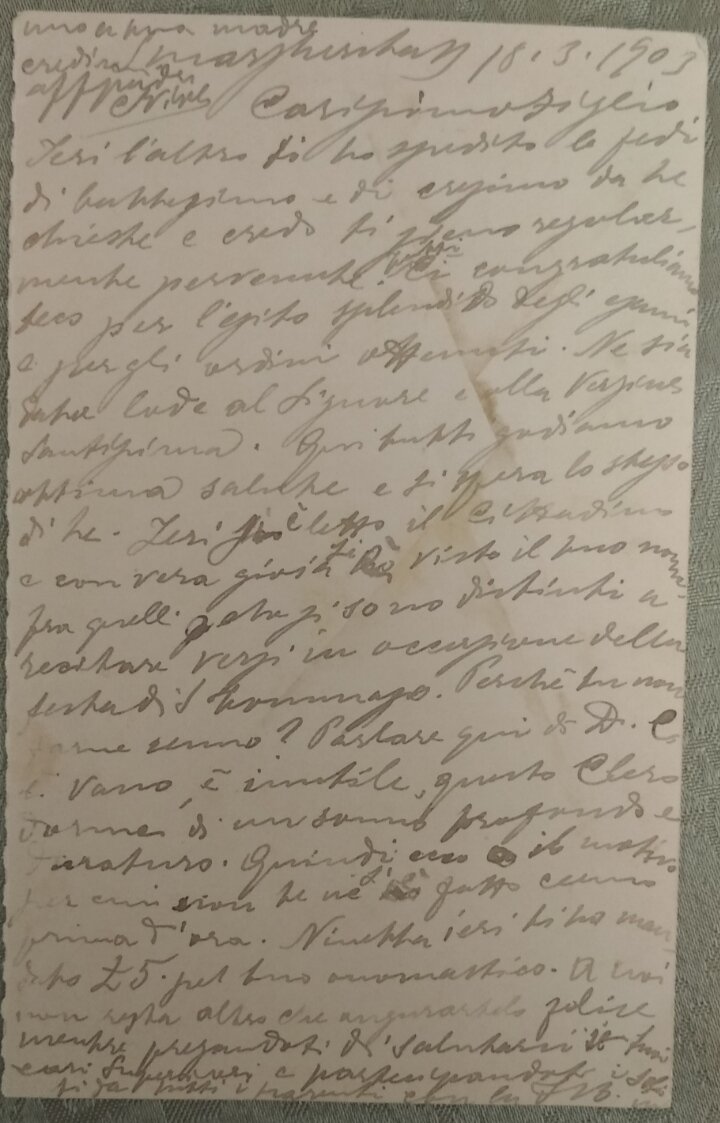 tua madre
18.3.1903
Carissimo figlio
Ieri l'altro ti ho spedito le fedi
di battesimo e di cresima da te
chieste e credo ti siano regolar-
mente pervenute. congratuliamo
teco per l'esito splendido degli esami
e per gli ordini ottenuti. Ne sia
lode al Signore e alla Vergine
Santissima. Qui tutti godiamo
ottima salute e si spera lo stesso
di te. Ieri è letto il Cittadino
e con vera gioia si è visto il tuo nome
fra quelli che si sono distinti a
recitare versi in occasione della
festa di S. Tommaso. Perché tu non
farne cenno? Parlare qui di D.
è inutile, questo Clero
dorme di un sonno profondo e
duraturo. Quindi ecco il motivo
per cui non te ne fatto cenno
prima d'ora. Ninetta ieri ti ha man-
dato £5. pel tuo onomastico. A noi
non resta altro che augurartelo felice
mentre pregandoti di salutarci i tuoi
cari Superiori e partecipandoti i
tutti i parenti con la